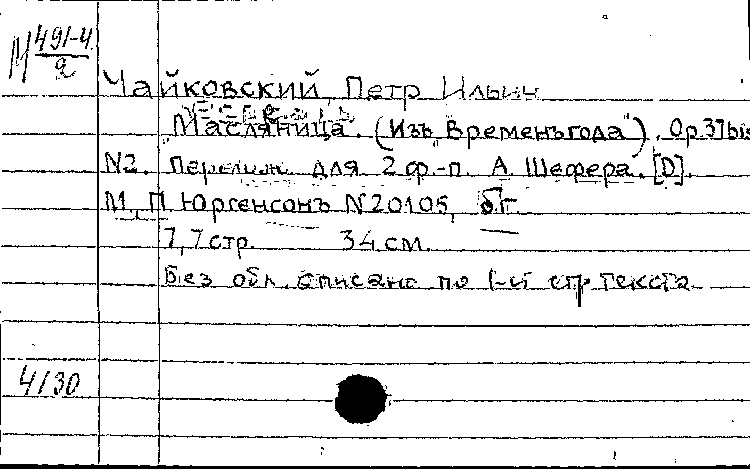 М 491-4
2
Чайковский, Петр Ильич
"Масляница". (Изъ "Временъ года"), Op 37 bis
N2. Перелож. для 2 ф.-п. А. Шефера. [D].
М., П. Юргенсонъ N 20105, б.г.
7, 7 стр. 34 см.
Без обл. описано по 1-й стр. текста
4/30